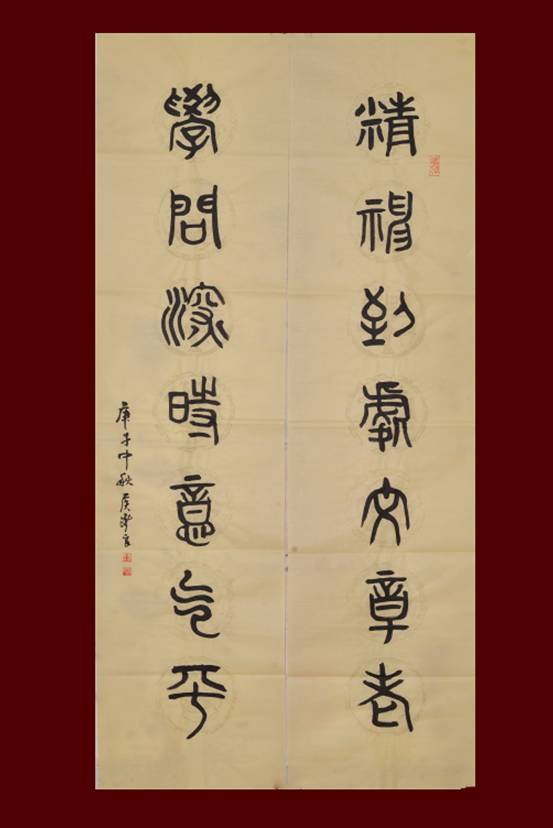 精神到處文章老
學問深時意气平
庚子中秋